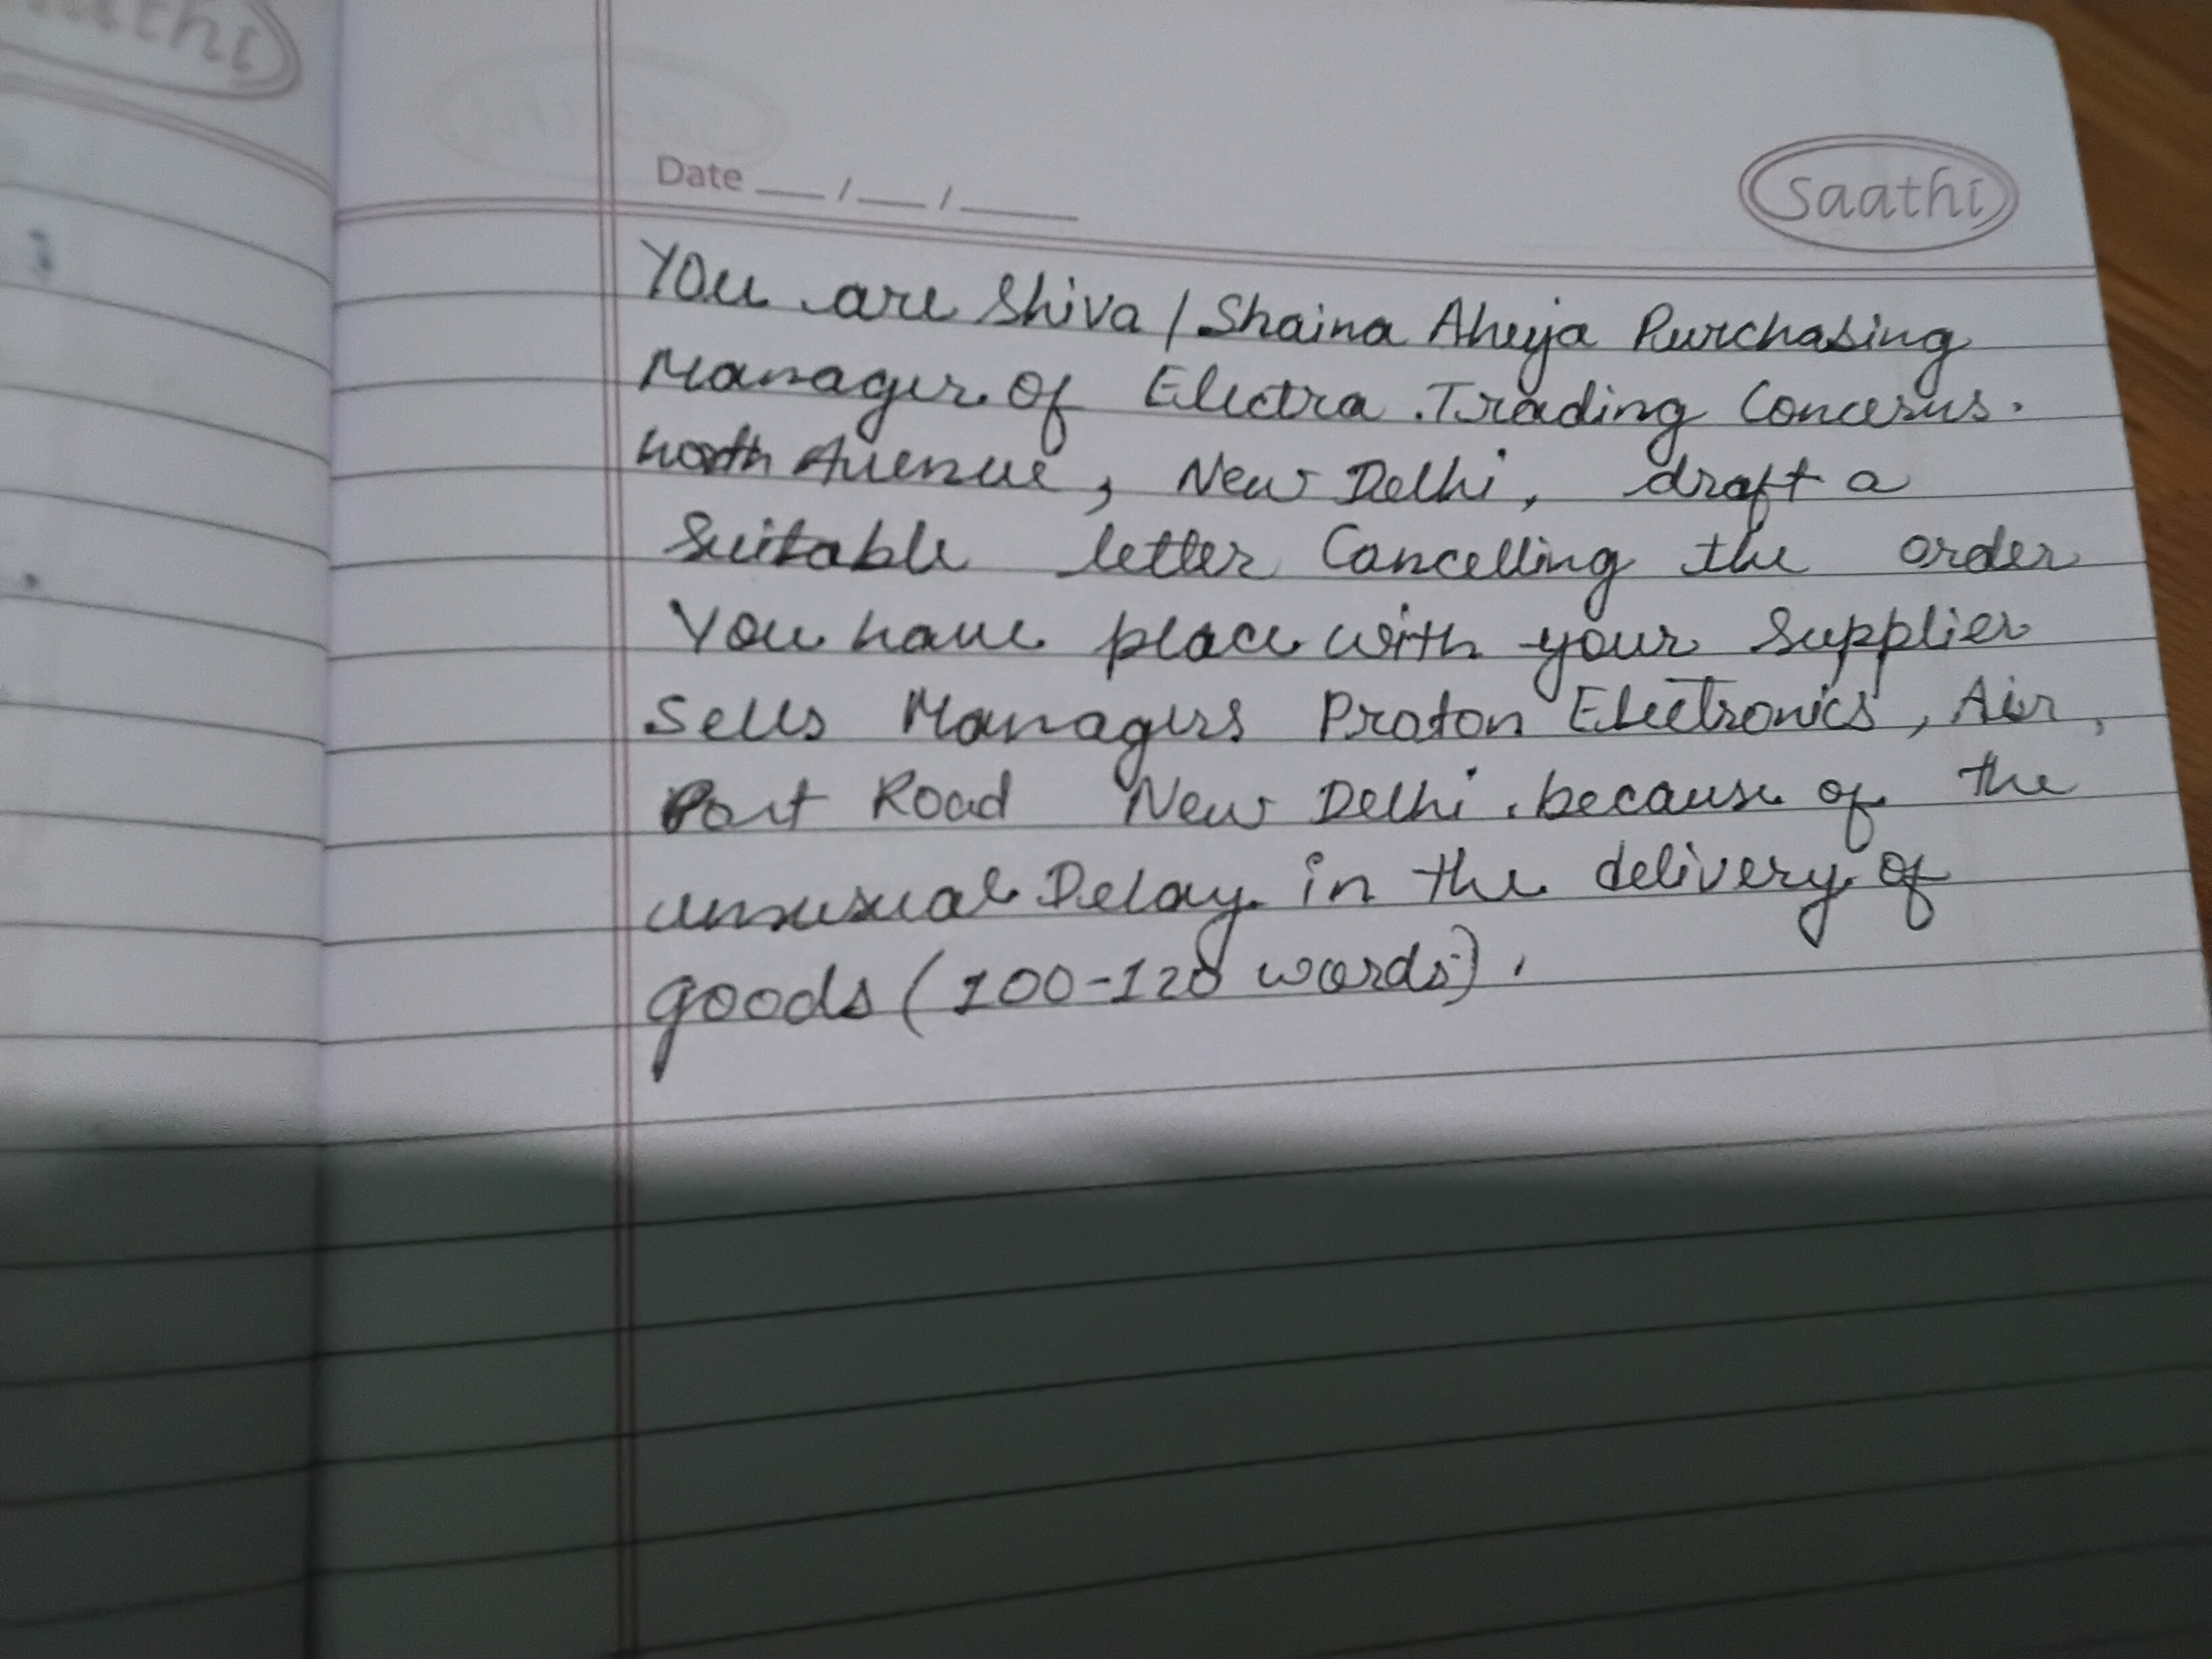 Date __/__/____
saathi
You are Shiva / Shaina Ahuja Purchasing
Manager of Electra Trading Concerns.
north Avenue, New Delhi, draft a
Suitable letter Cancelling the order
You have place with your Supplier
Sells Managers Proton Electronics, Air,
Port Road New Delhi. because of the
unusual Delay in the delivery of
goods (100-120 words).